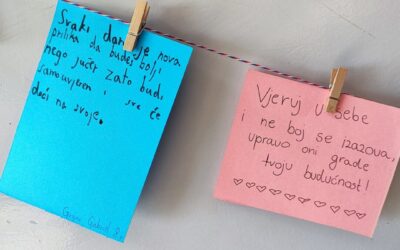 Svaki dan je nova
prilika da budeš bolji
nego jučer zato budi
samouvjeren i sve će
doći na svoje.
Vjeruj u sebe
i ne boj se izazova,
upravo oni grade
tvoju budućnost!